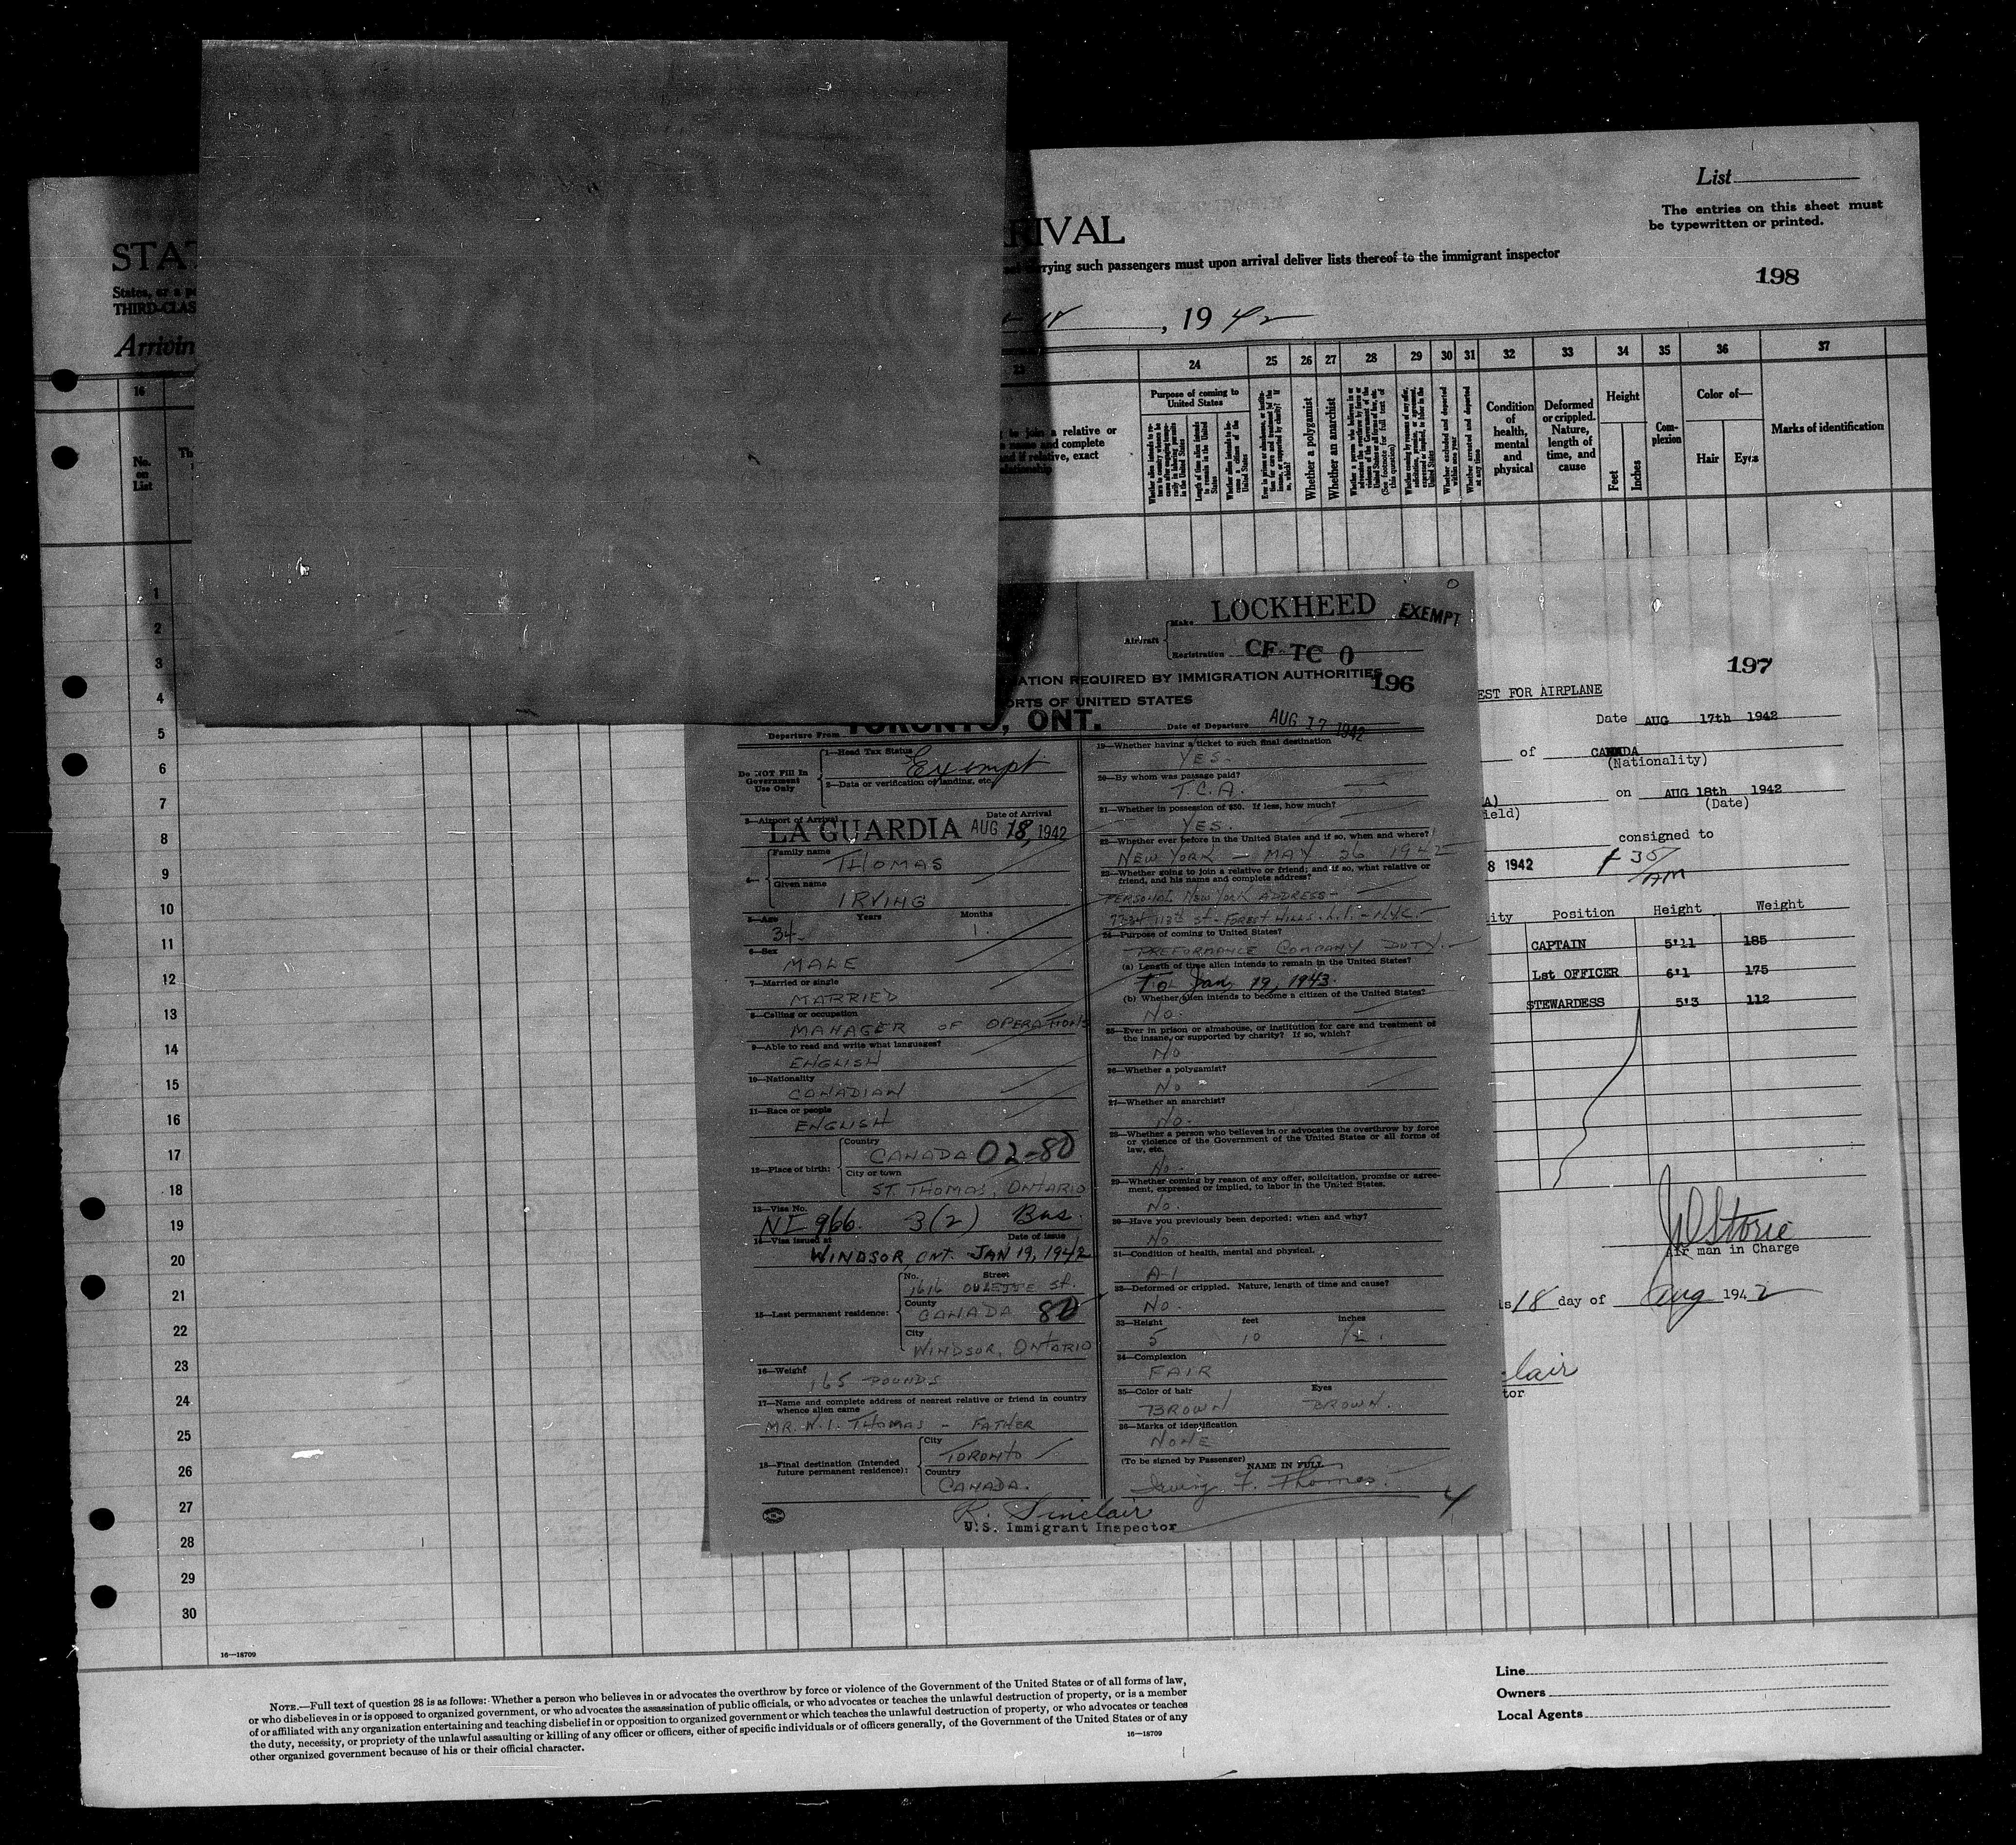 List
The entries on this sheet must
be typewritten or printed.
STA
RIVAL
States, or a
rrying such passengers must upon arrival deliver lists thereof to the immigrant inspector
THIRD-CLAS
198
Arrivin
18, 1942
16 23 24 25 26 27 28 29 30 31 32 33 34 35 36 37
No.
on
List
to join a relative or
name and complete
and if relative, exact
relationship
Purpose of coming to
United States
Whether a polygamist
Whether an anarchist
Condition
of
health,
mental
and
physical
Deformed
or crippled.
Nature,
length of
time, and
cause
Height
Feet
Inches
Com-
plexion
Color of—
Hair Eyes
Marks of identification
1
2
3
4
5
6
7
8
9
10
11
12
13
14
15
16
17
18
19
20
21
22
23
24
25
26
27
28
29
30
Aircraft
Make LOCKHEED EXEMPT
Registration CF-TC O
ATION REQUIRED BY IMMIGRATION AUTHORITIES
196
ORTS OF UNITED STATES
Departure From TORONTO, ONT.
Date of Departure AUG 17 1942
Do NOT Fill In
Government
Use Only
1—Head Tax Status
Exempt
2—Data or verification of landing, etc.
3—Airport of Arrival Date of Arrival
LA GUARDIA AUG 18, 1942
4—
Family name
THOMAS
Given name
IRVING
5—Age Years Months
34 1
6—Sex
MALE
7—Married or single
MARRIED
8—Calling or occupation
MANAGER OF OPERATIONS
9—Able to read and write what languages?
ENGLISH
10—Nationality
CANADIAN
11—Race or people
ENGLISH
12—Place of birth:
Country
CANADA 02-80
City or town
ST. THOMAS, ONTARIO
13—Visa No.
NI 966. 3(2) Bus.
14—Visa issued at Date of issue
WINDSOR, ONT. JAN 19, 1942
15—Last permanent residence:
No. Street
1616 OULETTE ST.
County
CANADA 80
City
WINDSOR, ONTARIO
16—Weight
165 POUNDS
17—Name and complete address of nearest relative or friend in country
whence alien came
MR. W. I. THOMAS - FATHER
18—Final destination (Intended
future permanent residence):
City
TORONTO
Country
CANADA.
19—Whether having a ticket to such final destination
YES-
20—By whom was passage paid?
T.C.A.
21—Whether in possession of $50. If less, how much?
YES.
22—Whether ever before in the United States and if so, when and where?
NEW YORK - MAY 26 1942
23—Whether going to join a relative or friend; and if so, what relative or
friend, and his name and complete address?
PERSONAL NEW YORK ADDRESS-
7334 113th St - FOREST HILLS. L.I. - N.Y.C.
24—Purpose of coming to United States?
PREFORMANCE COMPANY DUTY.
(a) Length of time alien intends to remain in the United States?
To Jan 19, 1943.
(b) Whether alien intends to become a citizen of the United States?
No.
25—Ever in prison or almshouse, or institution for care and treatment of
the insane, or supported by charity? If so, which?
No
26—Whether a polygamist?
No
27—Whether an anarchist?
No.
28—Whether a person who believes in or advocates the overthrow by force
or violence of the Government of the United States or all forms of
law, etc.
No.
29—Whether coming by reason of any offer, solicitation, promise or agree-
ment, expressed or implied, to labor in the United States.
No.
30—Have you previously been deported; when and why?
No
31—Condition of health, mental and physical.
A-1
32—Deformed or crippled. Nature, length of time and cause?
No.
33—Height feet inches
5 10 1/2.
34—Complexion
FAIR
35—Color of hair Eyes
BROWN BROWN.
36—Marks of identification
NONE
(To be signed by Passenger) NAME IN FULL
Irving F. Thomas.
4
R. Sinclair
U.S. Immigrant Inspector
197
EST FOR AIRPLANE
Date AUG 17th 1942
of CANADA
(Nationality)
A) on AUG 18th 1942
ield) (Date)
consigned to
8 1942
AM
ity Position Height Weight
CAPTAIN 5'11 185
1st OFFICER 6'1 175
STEWARDESS 5'3 112
J D Storie
Air man in Charge
is 18 day of Aug 1942
lair
tor
16—18709
NOTE.—Full text of question 28 is as follows: Whether a person who believes in or advocates the overthrow by force or violence of the Government of the United States or of all forms of law,
or who disbelieves in or is opposed to organized government, or who advocates the assassination of public officials, or who advocates or teaches the unlawful destruction of property, or is a member
of or affiliated with any organization entertaining and teaching disbelief in or opposition to organized government or which teaches the unlawful destruction of property, or who advocates or teaches
the duty, necessity, or propriety of the unlawful assaulting or killing of any officer or officers, either of specific individuals or of officers generally, of the Government of the United States or of any
other organized government because of his or their official character.
16—18709
Line
Owners
Local Agents